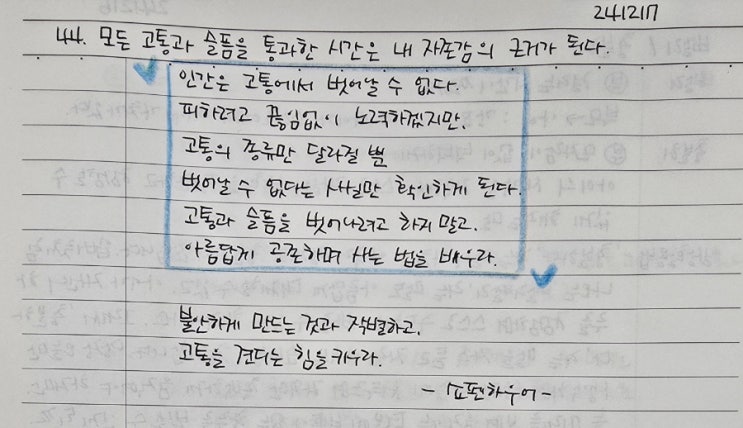 241217
44. 모든 고통과 슬픔을 통과한 시간은 내 자존감의 근거가 된다.
인간은 고통에서 벗어날 수 없다.
피하려고 끊임없이 노력하겠지만,
고통의 종류만 달라질 뿐
벗어날 수 없다는 사실만 확인하게 된다.
고통과 슬픔을 벗어나려고 하지 말고,
아름답게 공존하며 사는 법을 배우라.
불안하게 만드는 것과 작별하고,
고통을 견디는 힘을 키우라.
- 쇼펜하우어 -